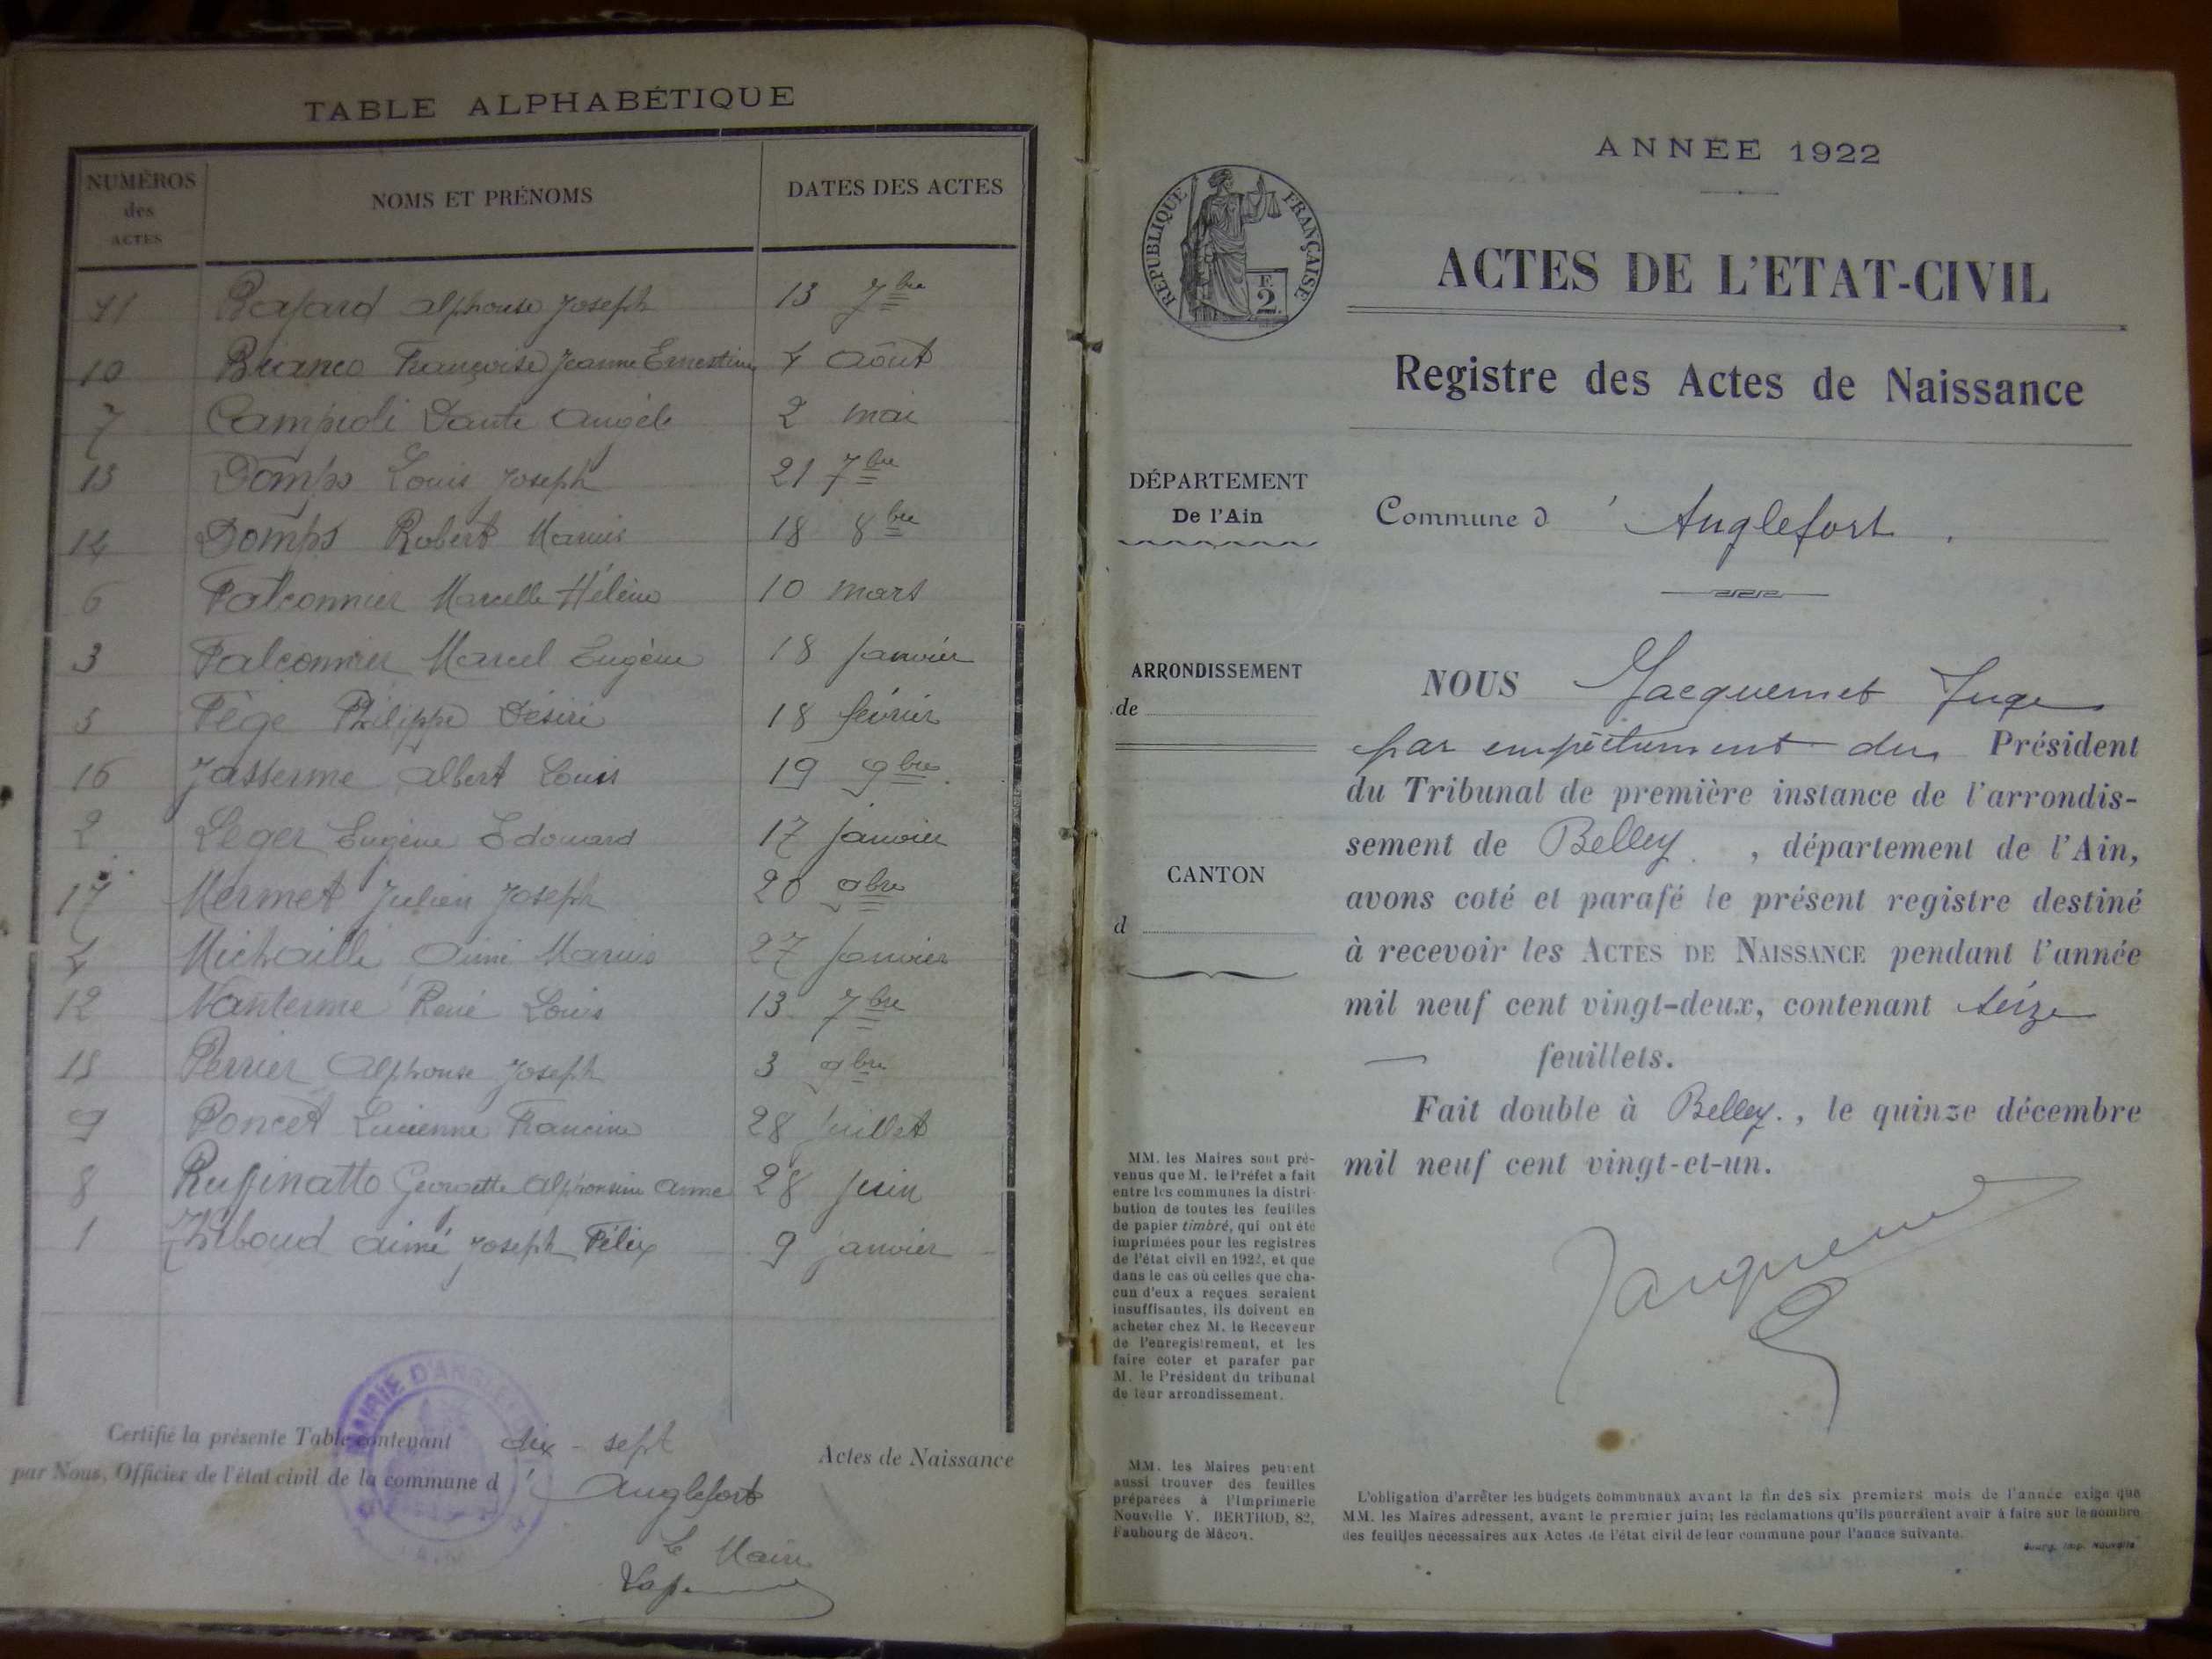 TABLE ALPHABÉTIQUE
NUMÉROS des ACTES NOMS ET PRÉNOMS DATES DES ACTES
11 Bayard Alphonse Joseph 13 7bre
10 Brianco Françoise Jeanne Ernestine 4 août
7 Campidi Dante Angèle 2 mai
13 Domps Louis Joseph 21 7bre
14 Domps Robert Marius 18 8bre
6 Falconnier Marcelle Hélène 10 mars
3 Falconnier Marcel Eugène 18 janvier
5 Fège Philippe Désiré 18 février
16 Jasserme Albert Louis 19 9bre
2 Leger Eugène Edouard 17 janvier
17 Mermet Julien Joseph 20 9bre
4 Michaille Aimé Marius 27 janvier
12 Nanterme René Louis 13 7bre
15 Perrier Alphonse Joseph 3 9bre
9 Poncet Lucienne Francine 28 juillet
8 Ruffinatto Georgette Alphonsine Anne 28 juin
1 Thiboud Aimé Joseph Félix 9 janvier
MAIRIE D'ANGLEFORT
Certifié la présente Table contenant dix-sept Actes de Naissance
par Nous, Officier de l'état civil de la commune d' Anglefort
Le Maire
ANNÉE 1922
RÉPUBLIQUE FRANÇAISE
F. 2
ACTES DE L'ETAT-CIVIL
Registre des Actes de Naissance
DÉPARTEMENT
De l'Ain
Commune d' Anglefort.
ARRONDISSEMENT
de
CANTON
d
NOUS Jacquemet Juge
par empêchement du Président
du Tribunal de première instance de l'arrondis-
sement de Belley, département de l'Ain,
avons coté et parafé le présent registre destiné
à recevoir les ACTES DE NAISSANCE pendant l'année
mil neuf cent vingt-deux, contenant seize
feuillets.
Fait double à Belley., le quinze décembre
mil neuf cent vingt-et-un.
Jacquemet
MM. les Maires sont pré-
venus que M. le Préfet a fait
entre les communes la distri-
bution de toutes les feuilles
de papier timbré, qui ont été
imprimées pour les registres
de l'état civil en 1922, et que
dans le cas où celles que cha-
cun d'eux a reçues seraient
insuffisantes, ils doivent en
acheter chez M. le Receveur
de l'enregistrement, et les
faire coter et parafer par
M. le Président du tribunal
de leur arrondissement.
MM. les Maires peuvent
aussi trouver des feuilles
préparées à l'Imprimerie
Nouvelle V. BERTHOD, 82,
Faubourg de Mâcon.
L'obligation d'arrêter les budgets communaux avant la fin des six premiers mois de l'année exige que
MM. les Maires adressent, avant le premier juin; les réclamations qu'ils pourraient avoir à faire sur le nombre
des feuilles nécessaires aux Actes de l'état civil de leur commune pour l'année suivante.
Bourg, Imp. Nouvelle